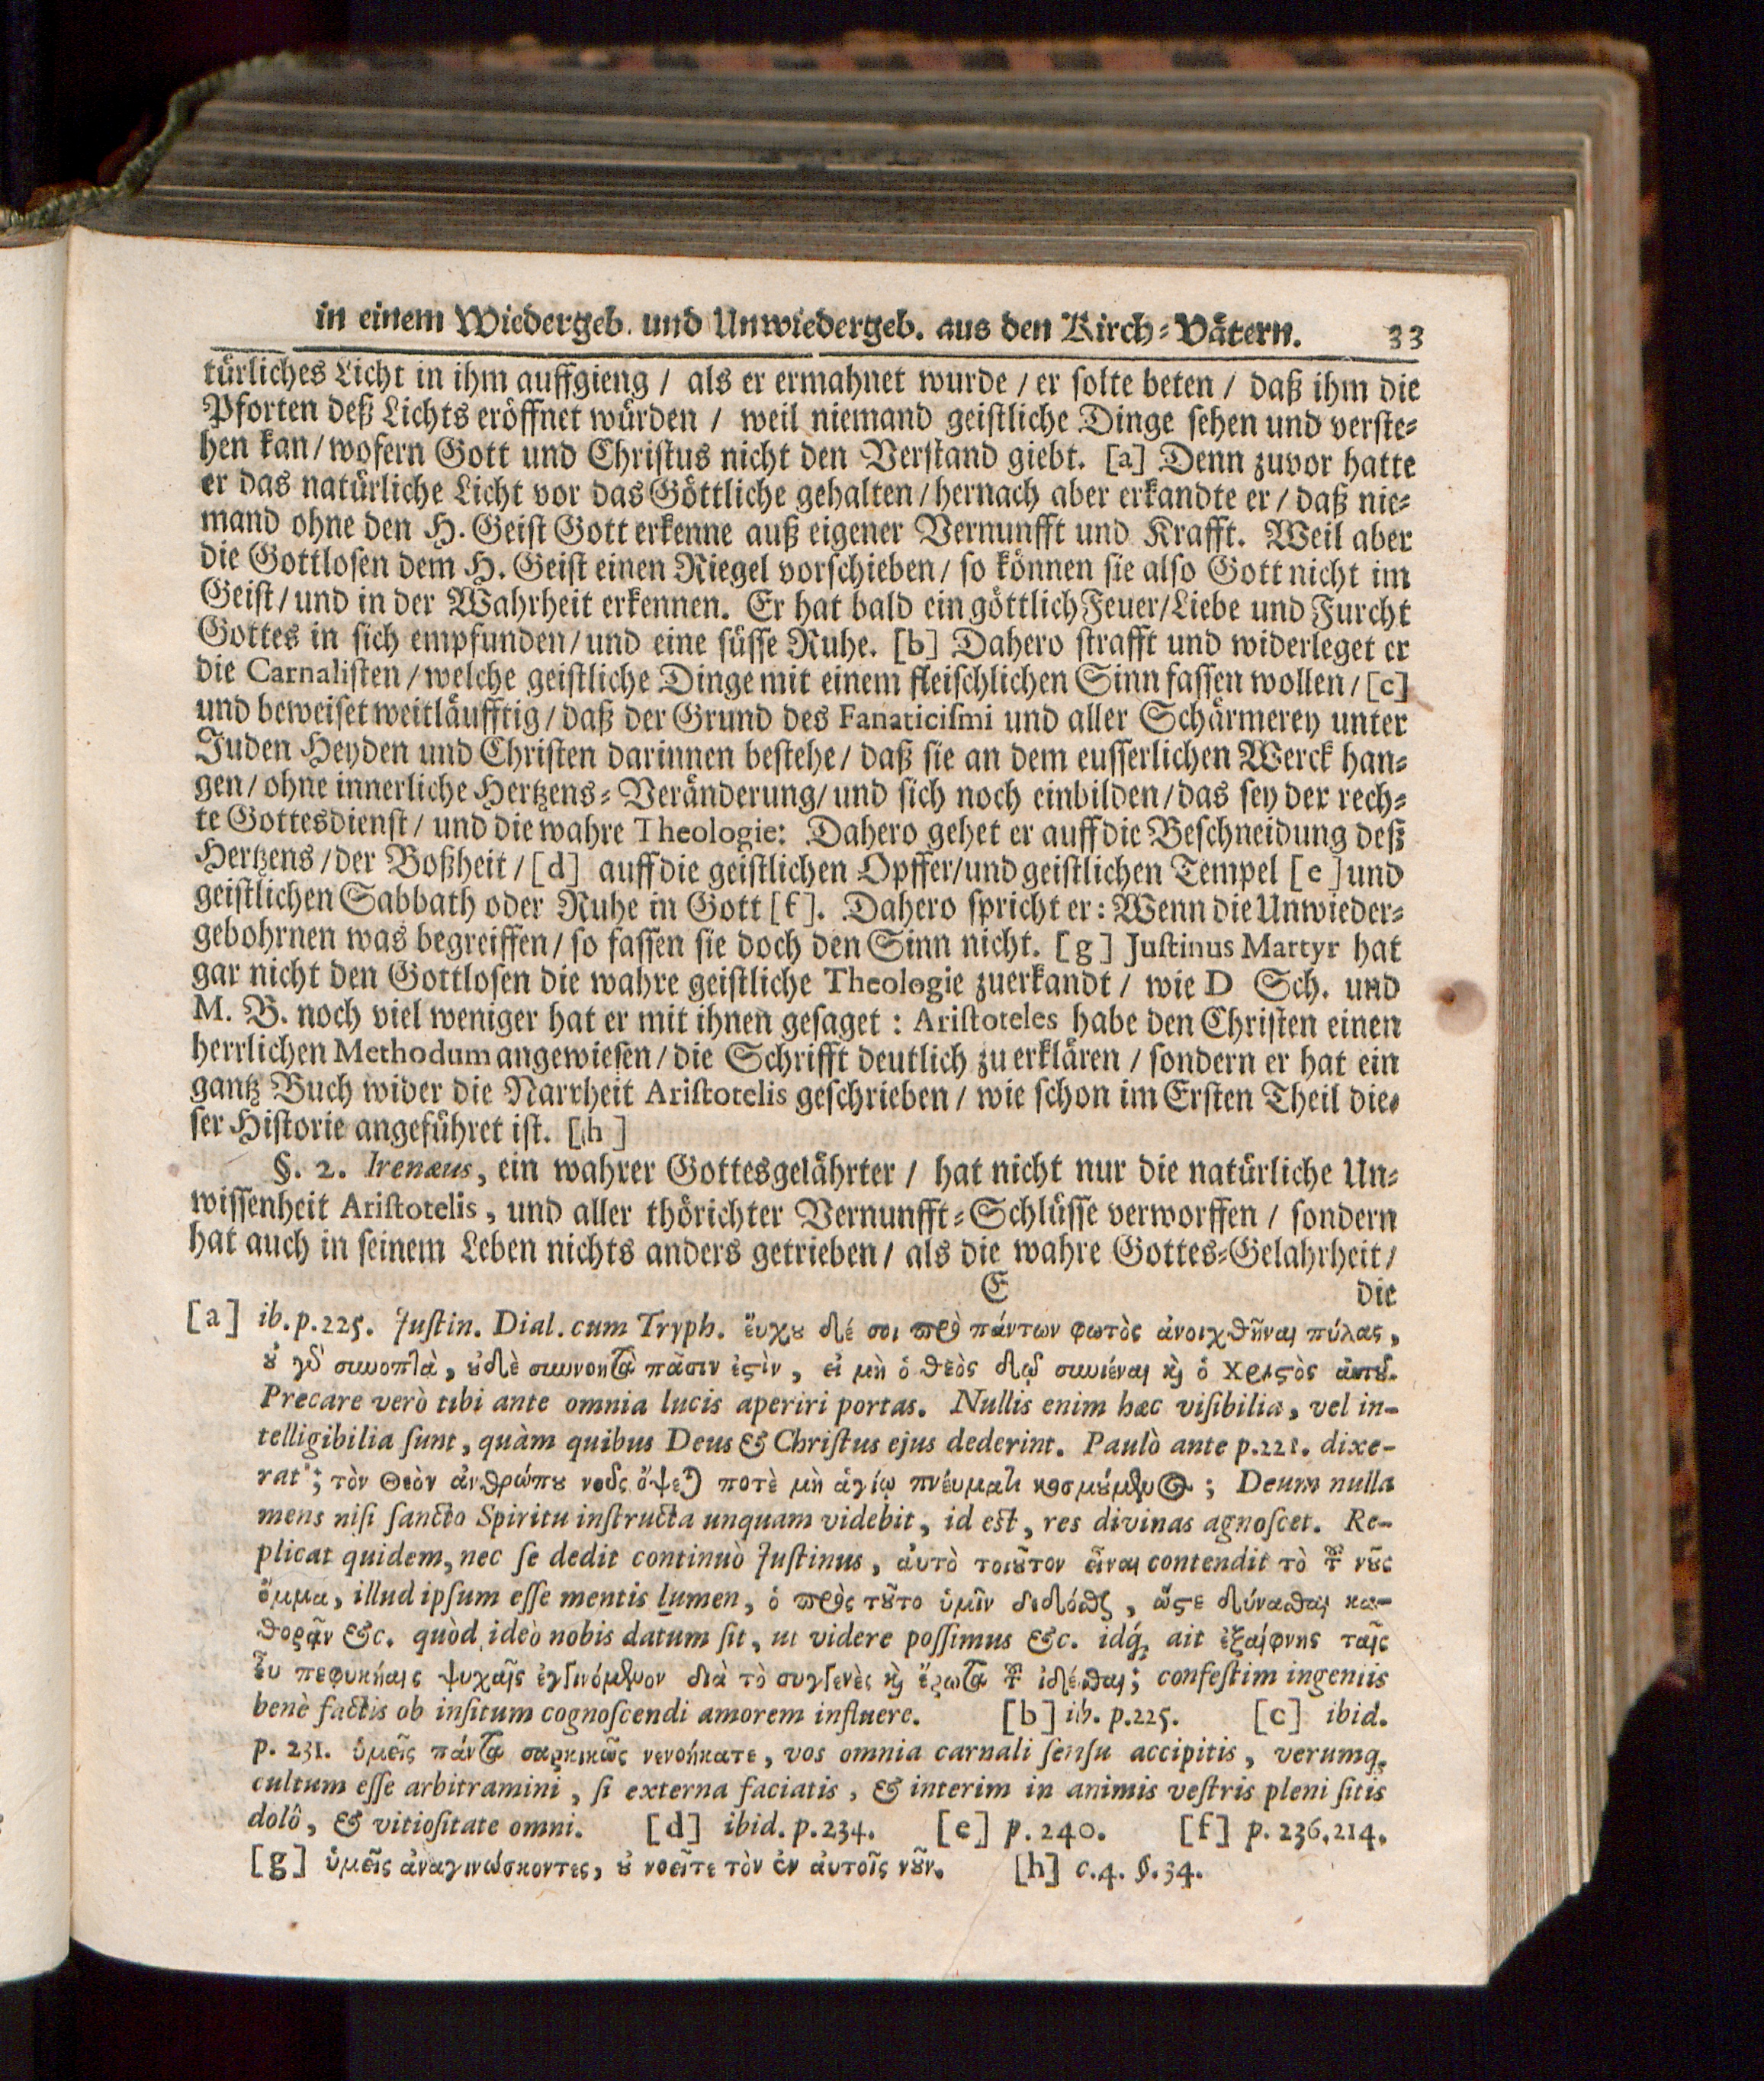 in einem Wiedergeb. und Unwiedergeb. aus den Kirch-Vätern. 33
türliches Licht in ihm auffgieng / als er ermahnet wurde / er solte beten / daß ihm die
Pforten deß Lichts eröffnet würden / weil niemand geistliche Dinge sehen und verste-
hen kan / wofern Gott und Christus nicht den Verstand giebt. [a] Denn zuvor hatte
er das natürliche Licht vor das Göttliche gehalten / hernach aber erkandte er / daß nie-
mand ohne den H. Geist Gott erkenne auß eigener Vernunfft und Krafft. Weil aber
die Gottlosen dem H. Geist einen Riegel vorschieben / so können sie also Gott nicht im
Geist / und in der Wahrheit erkennen. Er hat bald ein göttlich Feuer / Liebe und Furcht
Gottes in sich empfunden / und eine süsse Ruhe. [b] Dahero strafft und widerleget er
die Carnalisten / welche geistliche Dinge mit einem fleischlichen Sinn fassen wollen / [c]
und beweiset weitläufftig / daß der Grund des Fanaticismi und aller Schärmerey unter
Juden Heyden und Christen darinnen bestehe / daß sie an dem eusserlichen Werck han-
gen / ohne innerliche Hertzens-Veränderung / und sich noch einbilden / das sey der rech-
te Gottesdienst / und die wahre Theologie: Dahero gehet er auff die Beschneidung deß
Hertzens / der Boßheit / [d] auff die geistlichen Opffer / und geistlichen Tempel [e] und
geistlichen Sabbath oder Ruhe in Gott [f]. Dahero spricht er: Wenn die Unwieder-
gebohrnen was begreiffen / so fassen sie doch den Sinn nicht. [g] Justinus Martyr hat
gar nicht den Gottlosen die wahre geistliche Theologie zuerkandt / wie D Sch. und
M. B. noch viel weniger hat er mit ihnen gesaget: Aristoteles habe den Christen einen
herrlichen Methodum angewiesen / die Schrifft deutlich zu erklären / sondern er hat ein
gantz Buch wider die Narrheit Aristotelis geschrieben / wie schon im Ersten Theil die-
ser Historie angeführet ist. [h]
§. 2. Irenæus, ein wahrer Gottesgelährter / hat nicht nur die natürliche Un-
wissenheit Aristotelis, und aller thörichter Vernunfft-Schlüsse verworffen / sondern
hat auch in seinem Leben nichts anders getrieben / als die wahre Gottes-Gelahrheit /
E die
[a] ib. p. 225. Justin. Dial. cum Tryph. ἔυχȣ δέ σοι πρὸ πάντων φωτὸς ἀνοιχθῆναι πύλας,
ȣ́ γὸ συνοπτὰ, ȣ́δὲ συννοητὰ πᾶσιν ἐςὶν, εἰ μὴ ὁ θεὸς δῷ συνιέναι κ̀ ὁ χριςὸς ἀυτȣ͂.
Precare verò tibi ante omnia lucis aperiri portas. Nullis enim hæc visibilia, vel in-
telligibilia sunt, quàm quibus Deus & Christus ejus dederint. Paulò ante p. 221. dixe-
rat; τὸν Θεὸν ἀνθρώπȣ νοῦς ὄψεται ποτὲ μὴ ἁγίῳ πνέυματι κοσμȣ́μενος; Deum nulla
mens nisi sancto Spiritu instructa unquam videbit, id est, res divinas agnoscet. Re-
plicat quidem, nec se dedit continuò Justinus, ἀυτὸ τοιȣ͂τον εἶναι contendit τὸ τ̃ νȣ͂ς
ὄμμα, illud ipsum esse mentis lumen, ὁ πρὸς τȣ͂το ὑμῖν δεδόσθαι, ὥςε δύνασθαι κα-
θορᾷν &c. quòd ideò nobis datum sit, ut videre possimus &c. idq́; ait ἐξαίφνης ταῖς
ἐ͂υ πεφυκήαις ψυχαῖς ἐγγινόμενον διὰ τὸ συγγενὲς κ̀ ἔρωτα τ̃ ἰδέσθαι; confestim ingeniis
benè factis ob insitum cognoscendi amorem influere. [b] ib. p. 225. [c] ibid.
p. 231. ὑμεῖς πάντα σαρκικῶς νενοήκατε, vos omnia carnali sensu accipitis, verumq;
cultum esse arbitramini, si externa faciatis, & interim in animis vestris pleni sitis
dolô, & vitiositate omni. [d] ibid. p. 234. [e] p. 240. [f] p. 236, 214.
[g] ὑμεῖς ἀναγινώσκοντες, ȣ́ νοεῖτε τὸν ἐν ἀυτοῖς νȣ͂ν. [h] c. 4. §. 34.